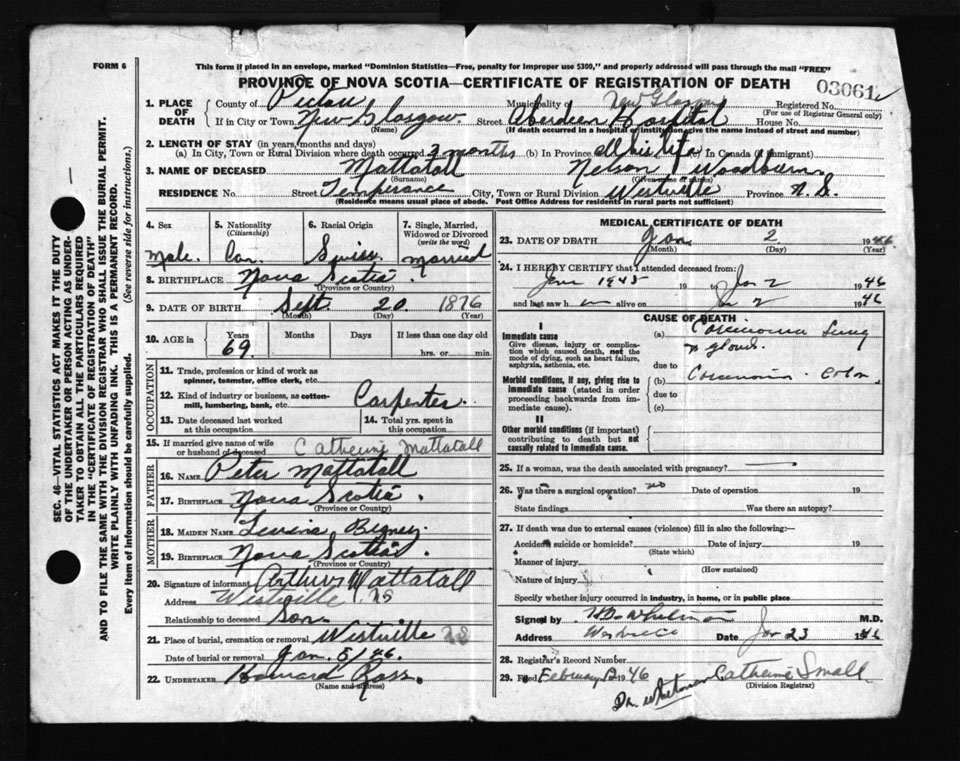 FORM 6
This form if placed in an envelope, marked "Dominion Statistics—Free, penalty for improper use $300," and properly addressed will pass through the mail "FREE"
PROVINCE OF NOVA SCOTIA—CERTIFICATE OF REGISTRATION OF DEATH
03061
1. PLACE OF DEATH
County of Pictou Municipality of New Glasgow Registered No.
(For use of Registrar General only)
If in City or Town New Glasgow Street Aberdeen Hospital House No.
(Name) (If death occurred in a hospital or institution give the name instead of street and number)
2. LENGTH OF STAY (in years, months and days)
(a) In City, Town or Rural Division where death occurred 3 months (b) In Province All his life (c) In Canada (if immigrant)
3. NAME OF DECEASED Mattatall Nelson Woodburn
(Surname) (Given name or names)
RESIDENCE No. Street Temperance City, Town or Rural Division Westville Province N.S.
(Residence means usual place of abode. Post Office Address for residents in rural parts not sufficient)
4. Sex 5. Nationality (Citizenship) 6. Racial Origin 7. Single, Married, Widowed or Divorced (write the word)
Male. Can. Swiss Married
8. BIRTHPLACE Nova Scotia
(Province or Country)
9. DATE OF BIRTH Sept. 20 1876
(Month) (Day) (Year)
10. AGE in Years Months Days If less than one day old
69 hrs. or min.
OCCUPATION
11. Trade, profession or kind of work as spinner, teamster, office clerk, etc.
12. Kind of industry or business, as cotton-mill, lumbering, bank, etc. Carpenter
13. Date deceased last worked at this occupation
14. Total yrs. spent in this occupation
15. If married give name of wife or husband of deceased Catherine Mattatall
FATHER
16. NAME Peter Mattatall
17. BIRTHPLACE Nova Scotia.
(Province or Country)
MOTHER
18. MAIDEN NAME
19. BIRTHPLACE Nova Scotia
(Province or Country)
20. Signature of informant Arthur Mattatall
Address Westville, NS
Relationship to deceased Son.
21. Place of burial, cremation or removal Westville NS
Date of burial or removal Jan. 5/46.
22. UNDERTAKER Howard Ross.
(Name and address)
MEDICAL CERTIFICATE OF DEATH
23. DATE OF DEATH Jan. 2 1946
(Month) (Day) (Year)
24. I HEREBY CERTIFY that I attended deceased from:
1945 19 to Jan 2 1946
and last saw h im alive on Jan 2 1946
CAUSE OF DEATH
I
Immediate cause
Give disease, injury or complication which caused death, not the mode of dying, such as heart failure, asphyxia, asthenia, etc.
(a) Carcinoma Lung
& glands.
due to
Morbid conditions, if any, giving rise to immediate cause (stated in order proceeding backwards from immediate cause).
(b) Carcinoma. Colon
due to
(c)
II
Other morbid conditions (if important) contributing to death but not causally related to immediate cause.
25. If a woman, was the death associated with pregnancy?
26. Was there a surgical operation? no Date of operation 19
State findings Was there an autopsy?
27. If death was due to external causes (violence) fill in also the following:—
Accident, suicide or homicide? Date of injury 19
(State which)
Manner of injury
(How sustained)
Nature of injury
Specify whether injury occurred in industry, in home, or in public place
Signed by Whitman M.D.
Address Westville Date Jan 23 1946
28. Registrar's Record Number
29. Filed February 2 1946 Catherine Small
(Division Registrar)
Dr. Whitman
SEC. 46—VITAL STATISTICS ACT MAKES IT THE DUTY
OF THE UNDERTAKER OR PERSON ACTING AS UNDER-
TAKER TO OBTAIN ALL THE PARTICULARS REQUIRED
IN THE "CERTIFICATE OF REGISTRATION OF DEATH"
AND TO FILE THE SAME WITH THE DIVISION REGISTRAR WHO SHALL ISSUE THE BURIAL PERMIT.
WRITE PLAINLY WITH UNFADING INK. THIS IS A PERMANENT RECORD.
Every item of information should be carefully supplied. (See reverse side for instructions.)